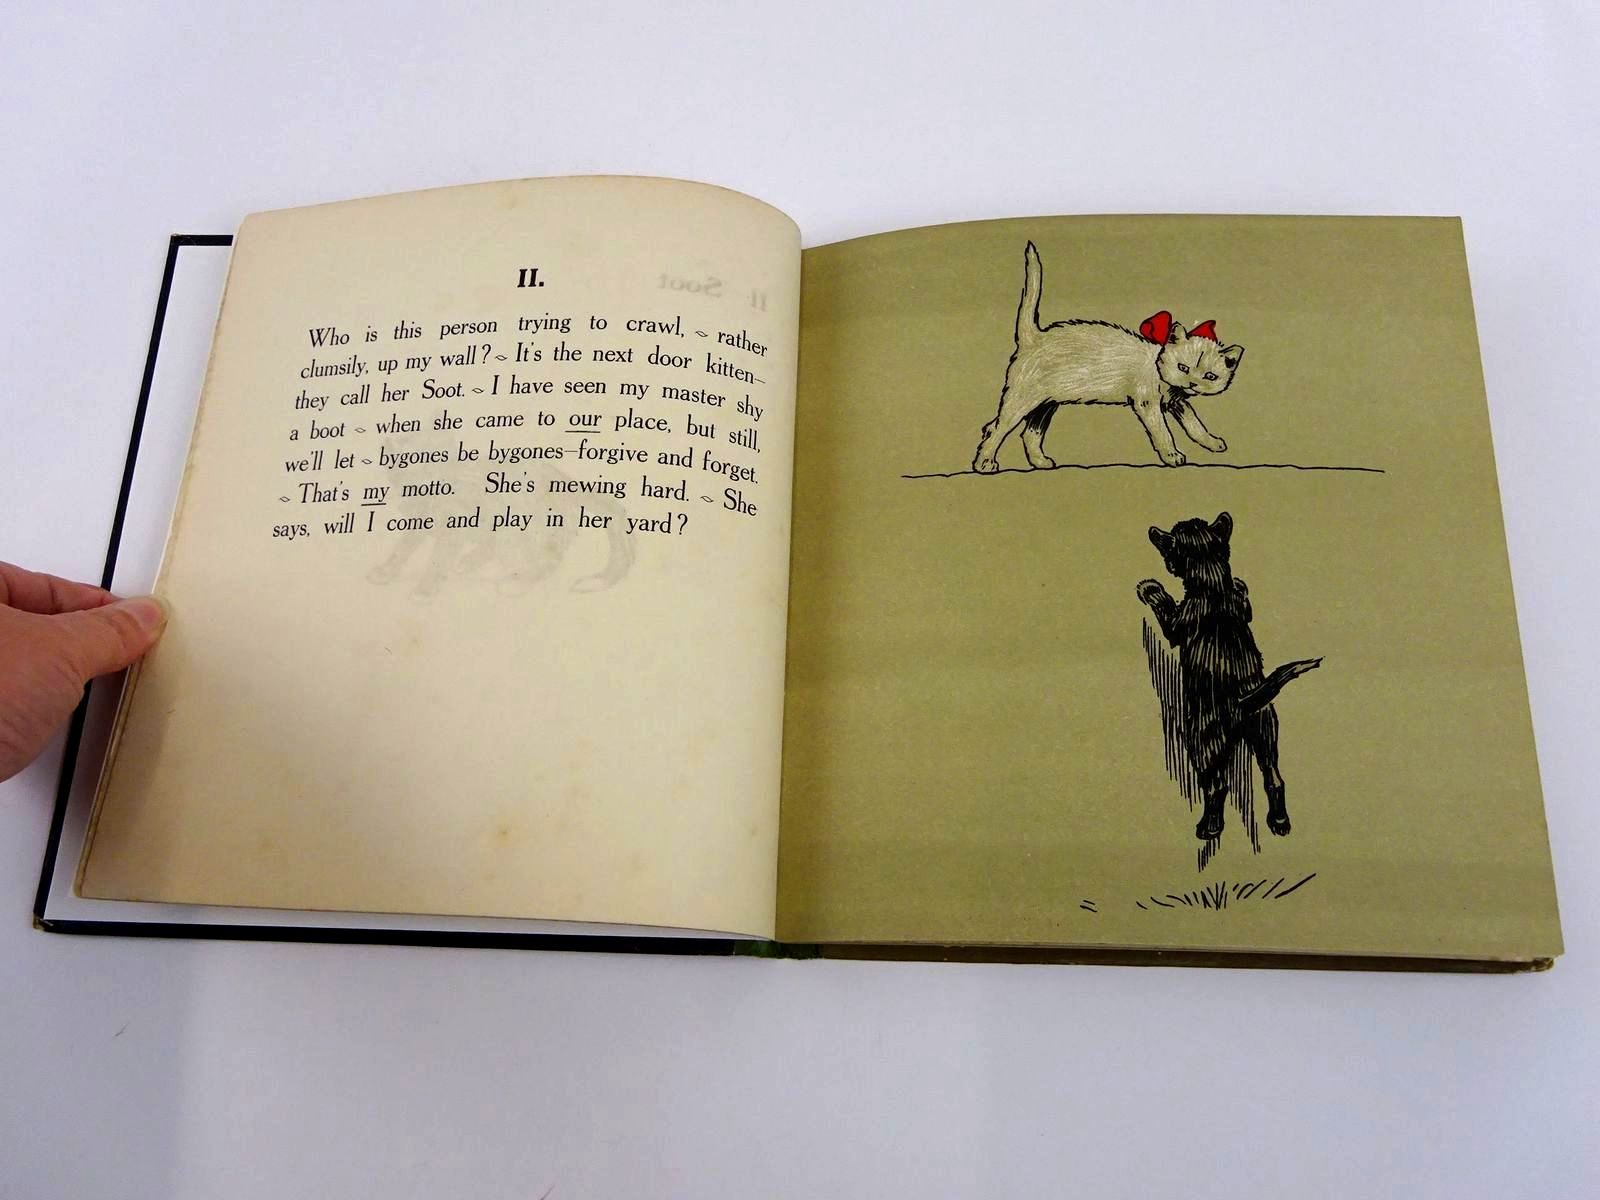 II.
II. Soot
Who is this person trying to crawl, rather
clumsily, up my wall? It's the next door kitten—
they call her Soot. I have seen my master shy
a boot when she came to our place, but still,
we'll let bygones be bygones—forgive and forget.
That's my motto. She's mewing hard. She
says, will I come and play in her yard?